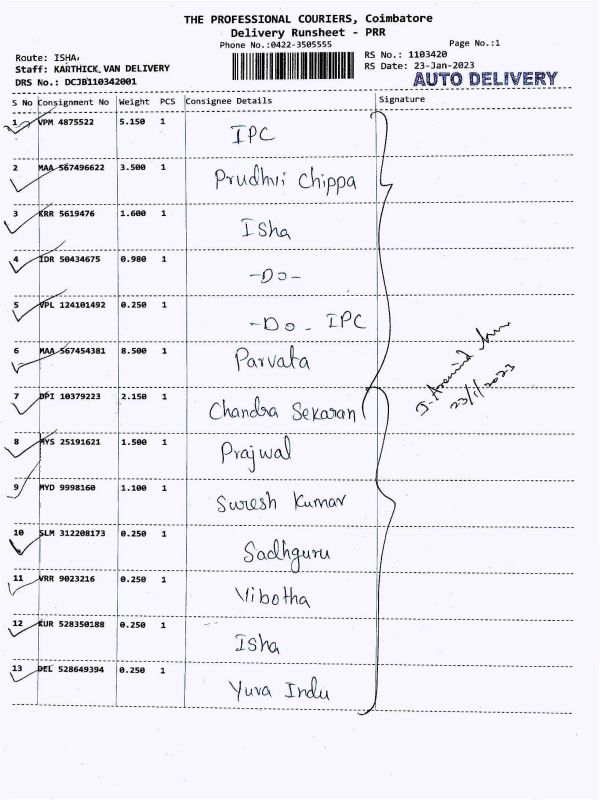 THE PROFESSIONAL COURIERS, Coimbatore
Delivery Runsheet - PRR
Phone No.:0422-3505555 Page No.:1
Route: ISHA, RS No.: 1103420
Staff: KARTHICK VAN DELIVERY RS Date: 23-Jan-2023
DRS No.: DCJB110342001 AUTO DELIVERY
S No Consignment No Weight PCS Consignee Details Signature
1 VPM 4875522 5.150 1 IPC
2 MAA 567496622 3.500 1 Prudhvi Chippa
3 KRR 5619476 1.600 1 Isha
4 IDR 50434675 0.980 1 -Do-
5 VPL 124101492 0.250 1 -Do- IPC
6 MAA 567454381 8.500 1 Parvata
7 DPI 10379223 2.150 1 Chandra Sekaran
8 MYS 25191621 1.500 1 Prajwal
9 MYD 9998160 1.100 1 Suresh Kumar
10 SLM 312208173 0.250 1 Sadhguru
11 VRR 9023216 0.250 1 Vibotha
12 KUR 528350188 0.250 1 Isha
13 DEL 528649394 0.250 1 Yuva Indu
23/1/2023